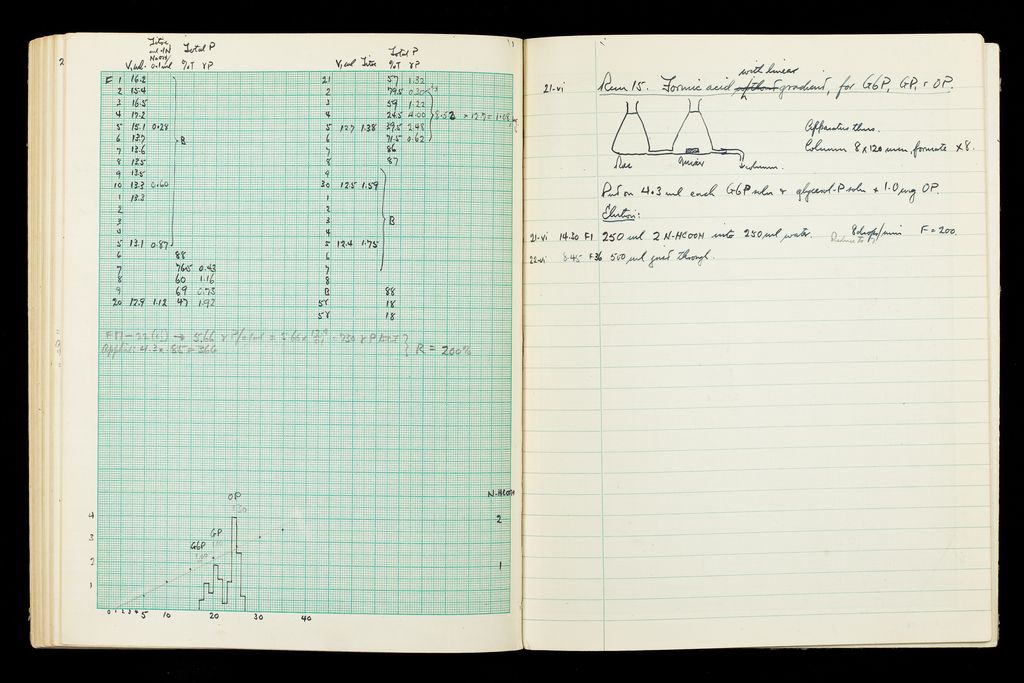 Titre
Total P
V, ml 0.1 ml %T γP
F 1 16.2
2 15.4
3 16.5
4 17.2
5 15.1 0.28
6 13.7 B
7 13.6
8 12.5
9 13.5
10 13.3 0.60
1 13.3
2
3
4
5 13.1 0.87
6 88
7 76.5 0.43
8 60 1.16
9 69 0.75
20 12.9 1.12 47 1.92
Total P
V, ml Titre %T γP
21 57 1.32
2 79.5 0.30
3 59 1.22
4 24.5 4.00
5 12.7 1.38 39.5 2.48
6 71.5 0.62
7 86
8 87
9
30 12.5 1.59
1
2
3 B
4
5 12.4 1.75
6
7
8
B 88
5γ 18
5γ 18
R = 200%
OP
GP
G6P
N-HCOOH
4
3
2
1
2
1
0 1 2 3 4 5 10 20 30 40
21-vi Run 15. Formic acid with linear gradient, for G6P, GP, + OP.
Apparatus thus.
Column 8 x 120 mm, formate x 8.
Res Mixer column
Put on 4.3 ml each G6P soln + glycerol-P soln + 1.0 mg OP.
Elution:
21-vi 14.30 F1 250 ml 2 N-HCOOH into 250 ml water. 8 drops/min F = 200
Reduce to 7
22-vi 8.45 F36 500 ml just through.